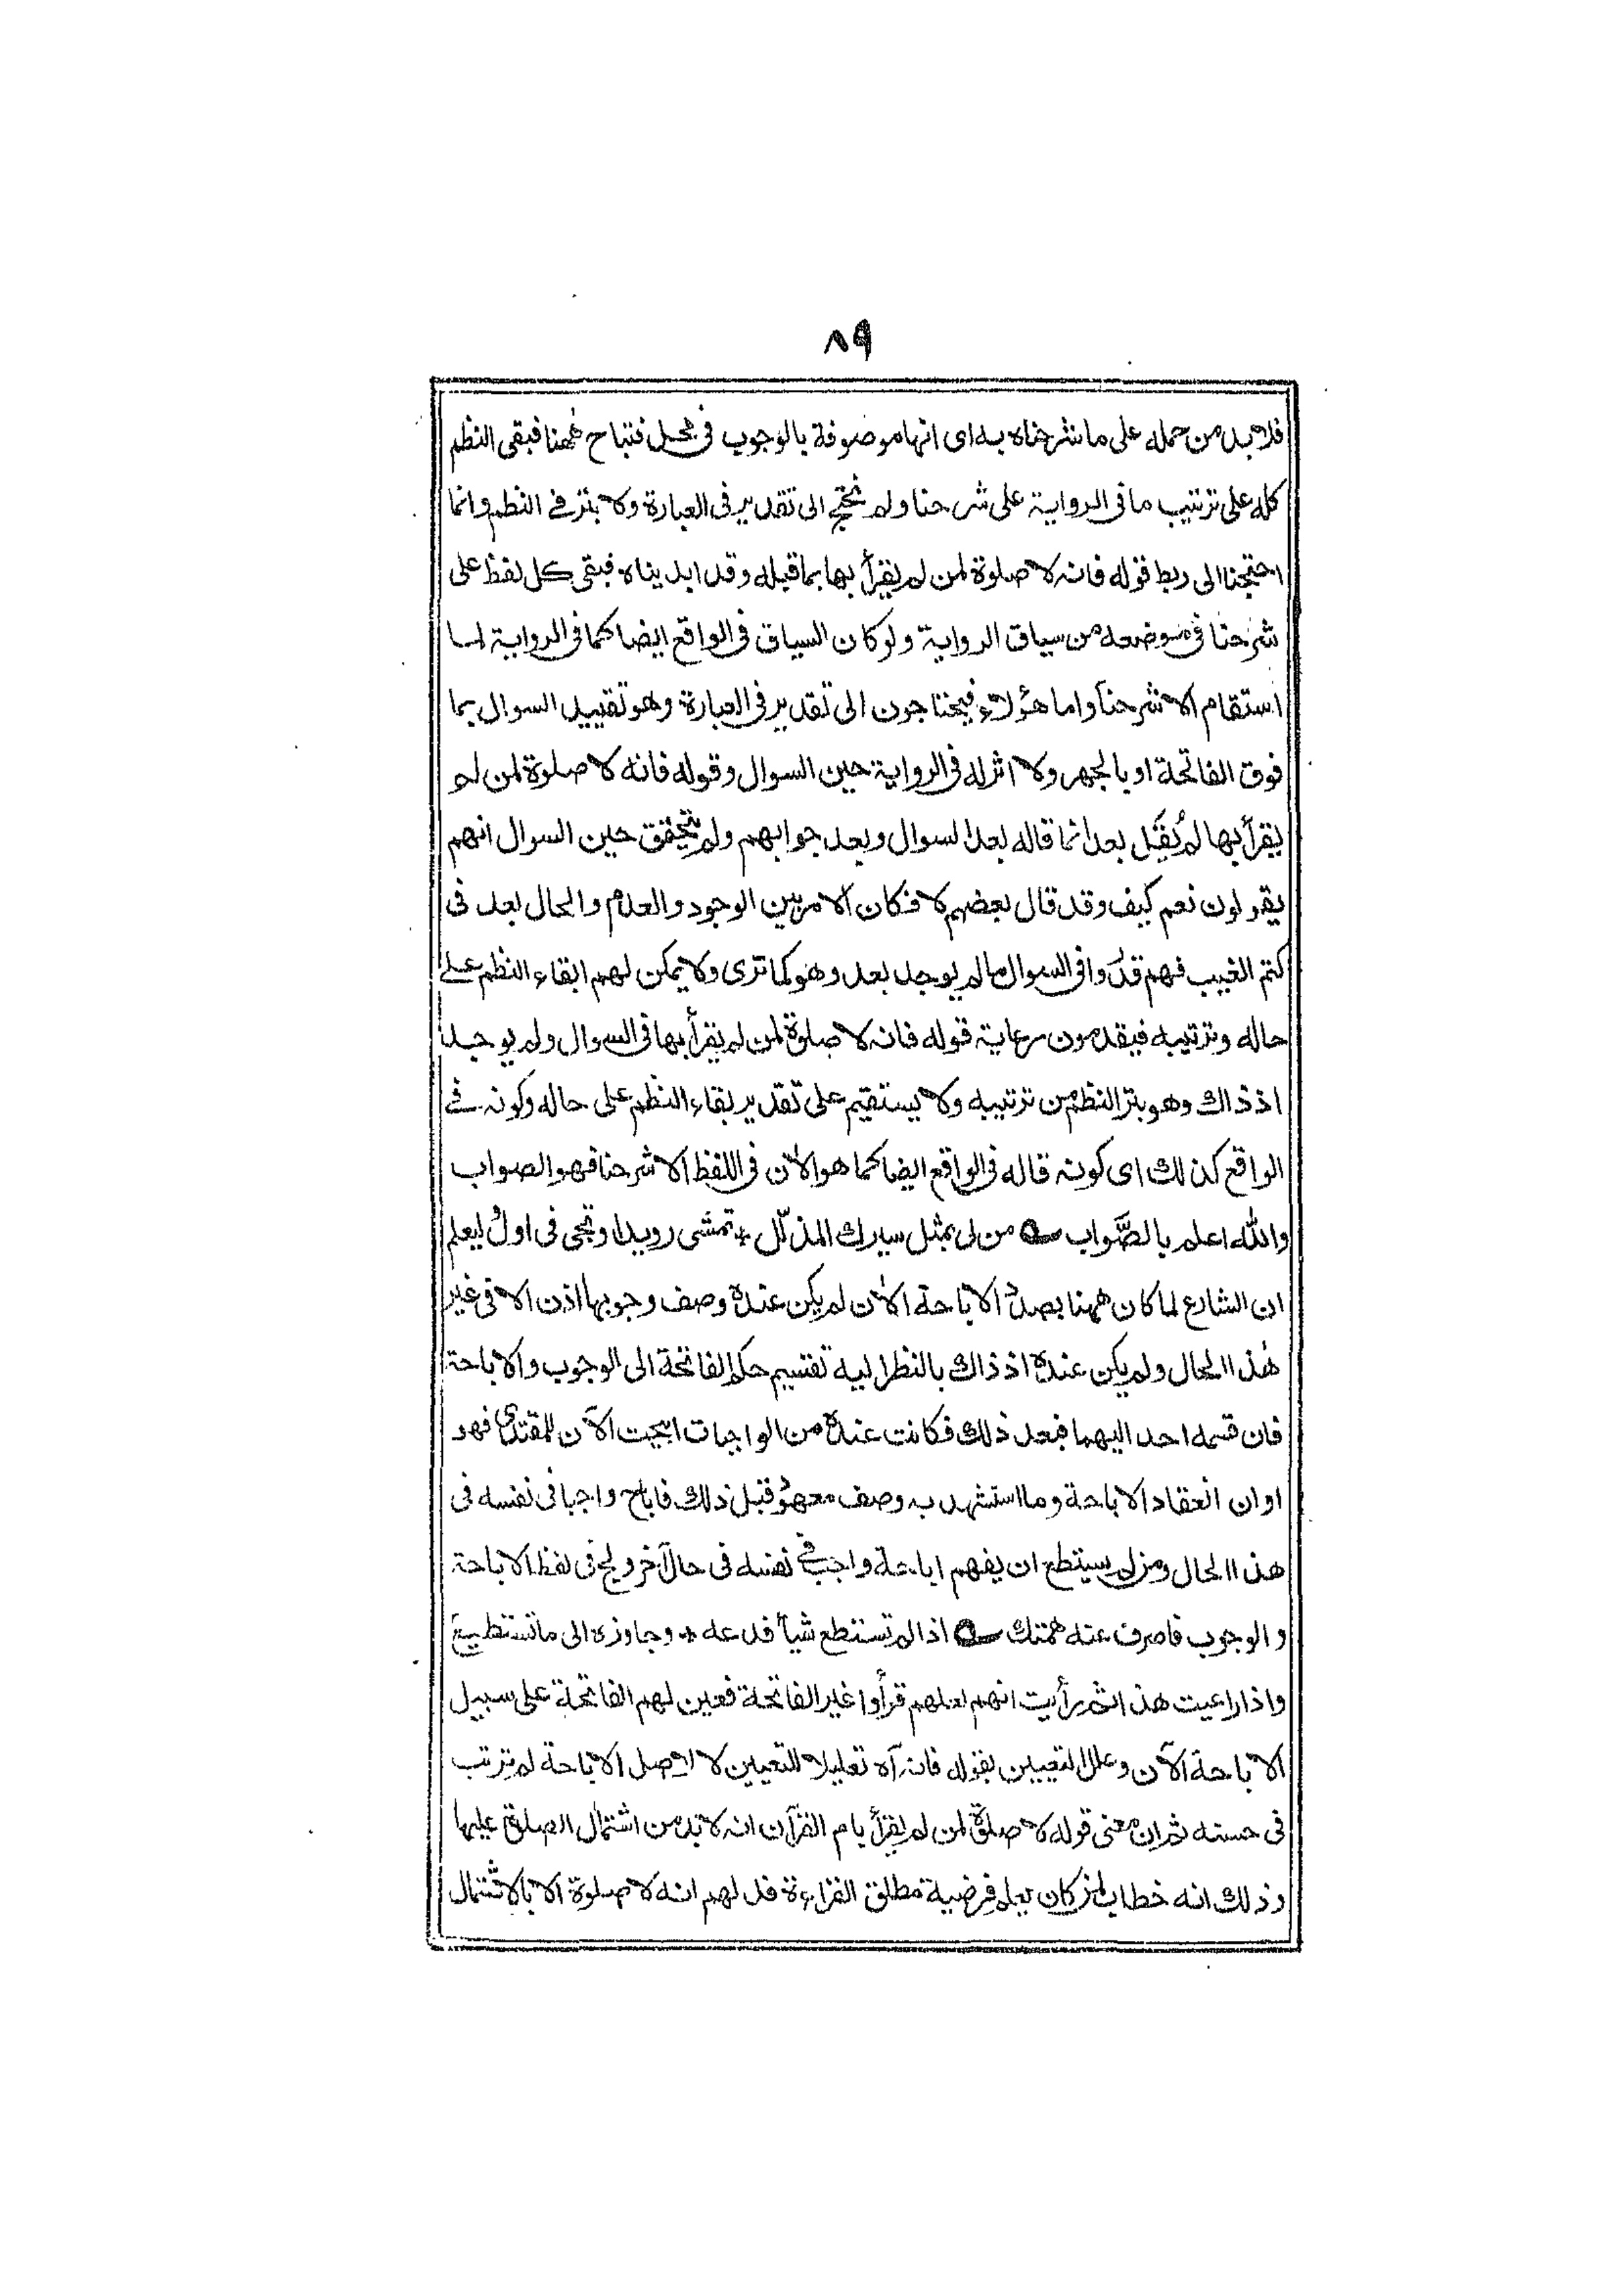 ٨٩
فلا بد من حمله على ما شرحناه به اى انها موصوفة بالوجوب فى محل فتباح ههنا فبقى النظم
كله على ترتيب ما فى الرواية على شرحنا ولم نحتج الى تقدير فى العبارة ولا بتر فے النظم وانما
احتجنا الى ربط قوله فانه لا صلوة لمن لم يقرأ بها بما قبله وقد ابديناه فبقى كل لفظ على
شرحنا فى موضعه من سياق الرواية ولو كان السياق فى الواقع ايضا كما فى الرواية لما
استقام الا شرحنا واما هؤلاء فيحتاجون الى تقدير فى العبارة وهو تقييد السوال بما
فوق الفاتحة او بالجهر ولا اثر له فى الرواية حين السوال وقوله فانه لا صلوة لمن لم
يقرأ بها لم يُقَل بعد انما قاله بعد السوال وبعد جوابهم ولم يتحقق حين السوال انهم
يقولون نعم كيف وقد قال بعضهم لا فكان الامر بين الوجود والعدم والحال بعد فى
كتم الغيب فهم قدّروا فى السوال ما لم يوجد بعد وهو كما ترى ولا يمكن لهم ابقاء النظم علے
حاله وترتيبه فيقدمون رعاية قوله فانه لا صلوة لمن لم يقرأ بها فى السوال ولم يوجد
اذ ذاك وهو بتر النظم من ترتيبه ولا يستقيم على تقدير بقاء النظم على حاله وكونه فے
الواقع كذلك اى كونه قاله فى الواقع ايضا كما هو الآن فى اللفظ الا شرحنا فهو الصواب
والله اعلم بالصَّواب ؎ من لى بمثل سيرك المذلّل * تمشى رويدا وتجى فى اول ليعلم
ان الشارع لما كان ههنا بصدد الاباحة الآن لم يكن عنده وصف وجوبها اذن الا فى غير
هٰذا الحال ولم يكن عنده اذ ذاك بالنظر اليه تقسيم حكم الفاتحة الى الوجوب والاباحة
فان قسمه احد اليهما فبعد ذلك فكانت عنده من الواجبات ابيحت الآن للمقتدى فهو
اوان انعقاد الاباحة وما استشهد به وصف معهود قبل ذلك فاباح واجبا فى نفسه فى
هذا الحال ومن لم يستطع ان يفهم اباحة واجب فے نفسه فى حال آخر ولج فى لفظ الاباحة
والوجوب فاصرف عنه همتك ؎ اذا لم تستطع شيأ فدعه * وجاوزه الى ما تستطيع
واذا راعيت هذا ثم رأيت انهم لعلهم قرأوا غير الفاتحة فعين لهم الفاتحة على سبيل
الاباحة الآن وعلل التعيين بقوله فانه آه تعليلا للتعيين لا لاصل الاباحة لم ترتب
فى حسنه ثم ان معنى قوله لا صلوة لمن لم يقرأ بام القرآن انه لا بد من اشتمال الصلوة عليها
وذلك انه خطاب لمن كان يعلم فرضية مطلق القراءة فدل لهم انه لا صلوة الا بالاشتمال